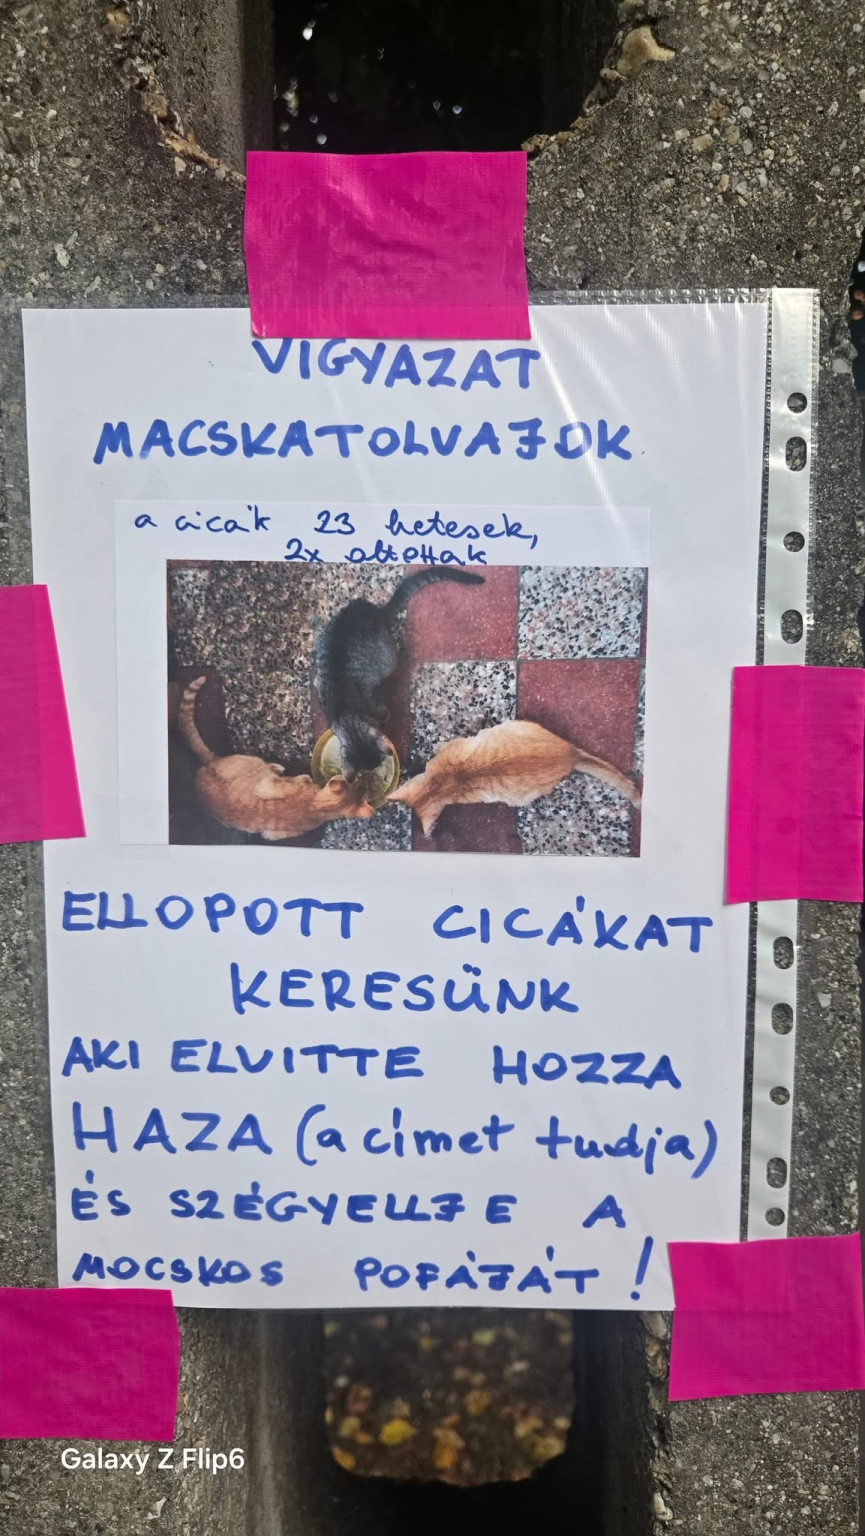 VIGYAZAT
MACSKATOLVAJOK
a cicák 23 hetesek,
2x oltottak
ELLOPOTT CICÁKAT
KERESÜNK
AKI ELVITTE HOZZA
HAZA (a címet tudja)
ÉS SZÉGYELLJE A
MOCSKOS POFÁJÁT!
Galaxy Z Flip6